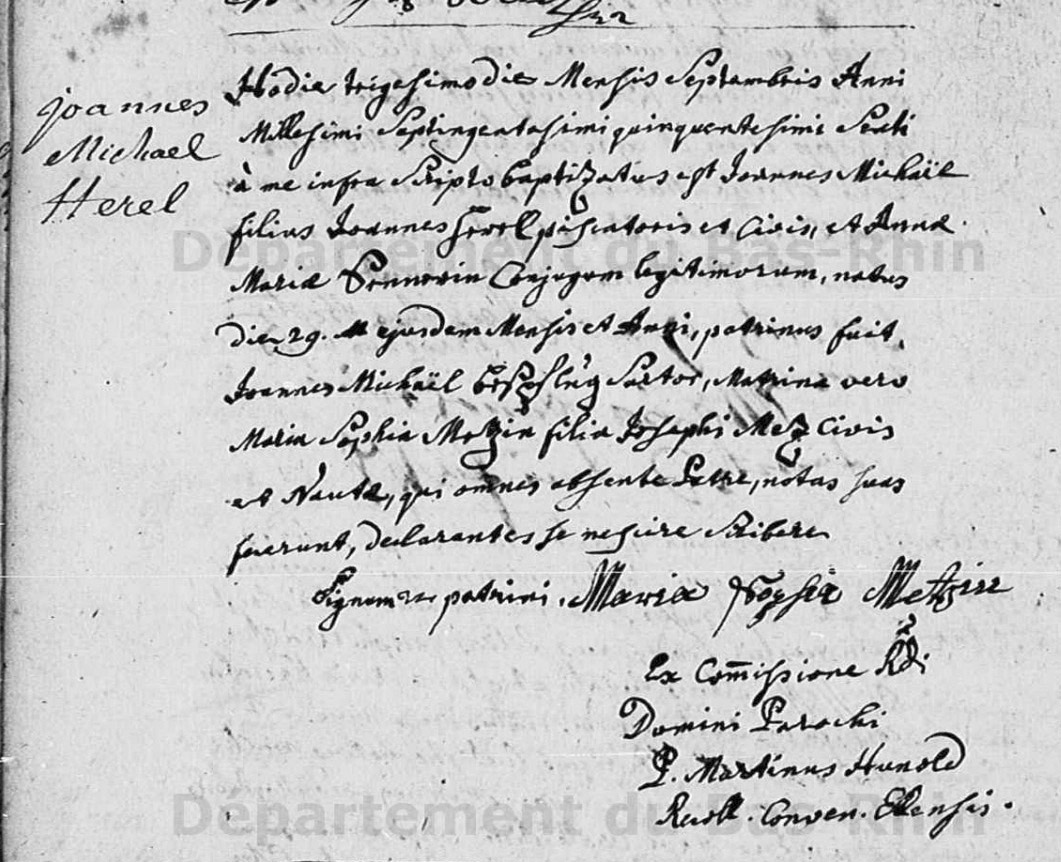 Joannes
Michael
Herel
Hodie trigesimo die Mensis Septembris Anni
Millesimi Septingentesimi quinquentesimi Sexti
à me infra Scripto baptizatus est Joannes Michaël
filius Joannes herel piscatoris et Civis, et Annæ
Mariæ Conjugum legitimorum, natus
die 29. ejusdem Mensis et Anni, patrinus fuit
Joannes Michaël Sartor, Matrina vero
Maria Sophia Metzin filia Josephi Metz Civis
et Nautæ, qui omnes absente Patre, notas suas
fecerunt, declarantes se nescire Scribere
Signum patrini. Maria Sophia Metzin
Ex Com̄issione Rdi
Domini Parochi
P. Martinus Hunold
Recoll. Conven. Ellensis.
Département du Bas-Rhin
Département du Bas-Rhin